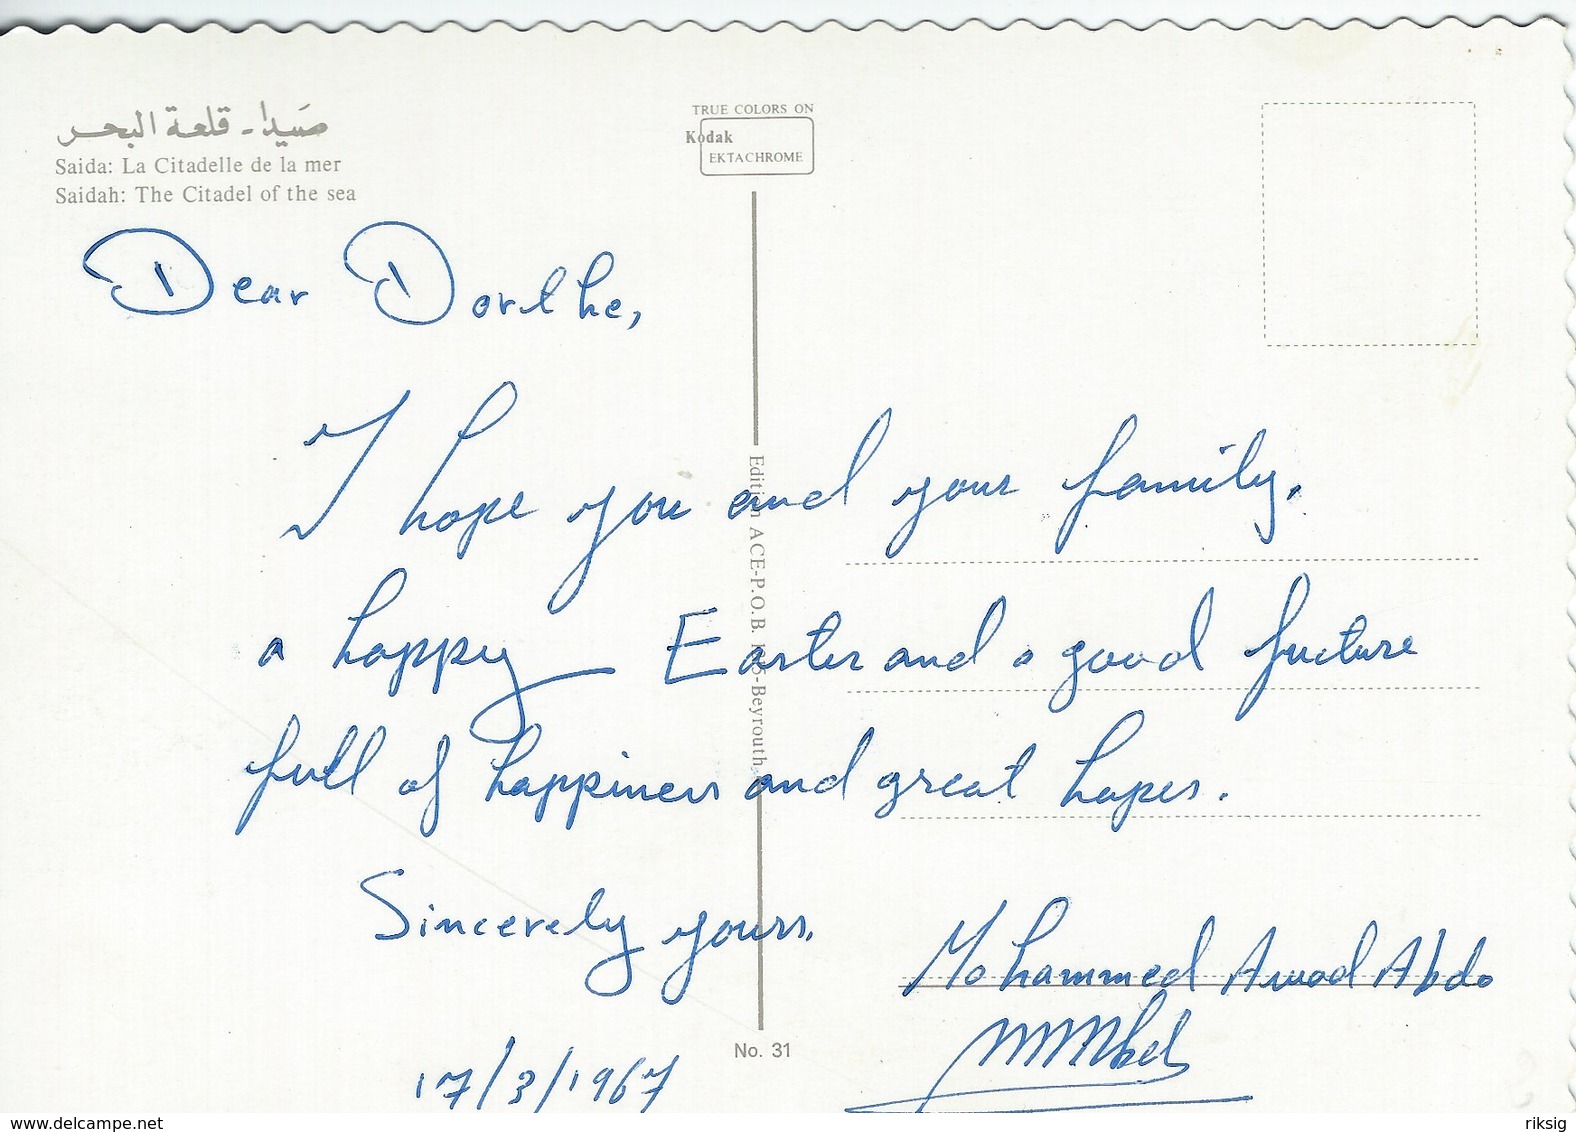 صيدا - قلعة البحر
Saida: La Citadelle de la mer
Saidah: The Citadel of the sea
TRUE COLORS ON
Kodak
EKTACHROME
Dear Dorthe,
I hope you and your family,
a happy Easter and a good fucture
full of happiness and great hopes.
Sincerely yours,
Mohammed Awad Abdo
17/3/1967
Edition ACE-P.O.B. -Beyrouth
No. 31
www.delcampe.net
riksig